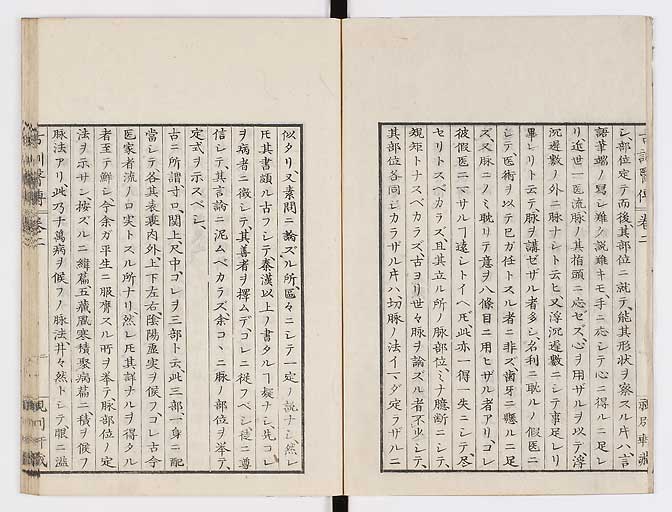 シ、部位定テ而後其部位ニ就テ、能其形状ヲ察スル片ハ、言
語筆端ノ寫シ難ク説難キモ、手ニ応シテ心ニ得ルニ足レ
リ、近世一医流、脉ノ其指頭ニ応セズ、心ヲ用ザルヲ以テ、浮
沉遅數ノ外ニ脉ナシト云ヒ、又浮沉遅數ニシテ事足レリ
畢レリト云テ、脉ヲ講ゼザル者多シ、名利ニ耽ルノ假医ニ
シテ、医術ヲ以テ己ガ任トスル者ニ非ズ、歯牙ニ懸ルニ足
ズ、又脉ニノミ耽リテ、意ヲ八條目ニ用ヒザル者アリ、コレ
彼假医ニマサルヿ遠シトイヘ𪜈、此亦一得一失ニシテ、尽
セリトスベカラズ、且其立ル所ノ脉部位、ミナ臆断ニシテ、
規矩トナスベカラズ、古ヨリ世々脉ヲ論ズル者不少シテ、
其部位各同シカラザル片ハ、切脉ノ法イマダ定ラザルニ
似タリ、又素問ニ論ズル所、區々ニシテ一定ノ説ナシ、然レ
𪜈其書頗ル古フシテ、秦漢以上ノ書タルヿ疑ナシ、先コレ
ヲ病者ニ徴シテ、其善者ヲ擇ムデコレニ従フベシ、徒ニ尊
信シテ、其言論ニ泥ムベカラズ、余コヽニ脉ノ部位ヲ挙テ、
定式ヲ示スベシ、
古ニ所謂寸口、関上、尺中、コレヲ三部ト云、此三部、一身ニ配
當シテ、各其表裏内外、上下左右、陰陽虚実ヲ候フ、コレ古今
医家者流ノ口実トスル所ナリ、然レ𪜈其詳ナルヲ得タル
者至テ鮮シ、今余ガ平生ニ服膺スル所ヲ挙テ、脉部位ノ定
法ヲ示サン、按ズルニ緯篇五藏風寒積聚病篇ニ積ヲ候フ
脉法アリ、此乃チ萬病ヲ候フノ脉法、井々然トシテ眼ニ溢